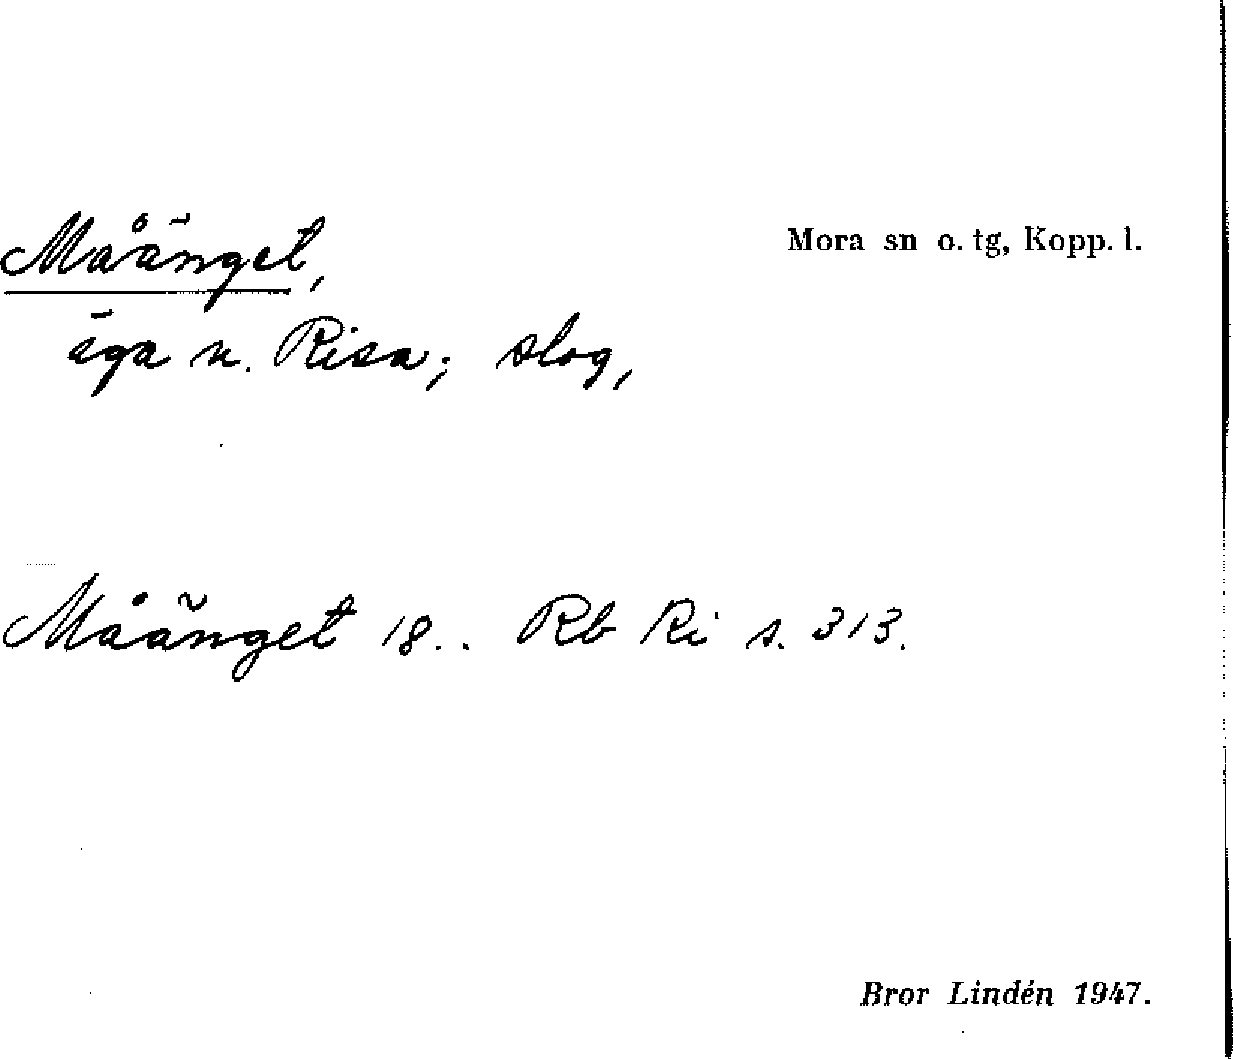 Måänget, Mora sn o. tg, Kopp. l.
äga n. Risa; slog,
Måänget 18.. Rb Ri s. 313.
Bror Lindén 1947.